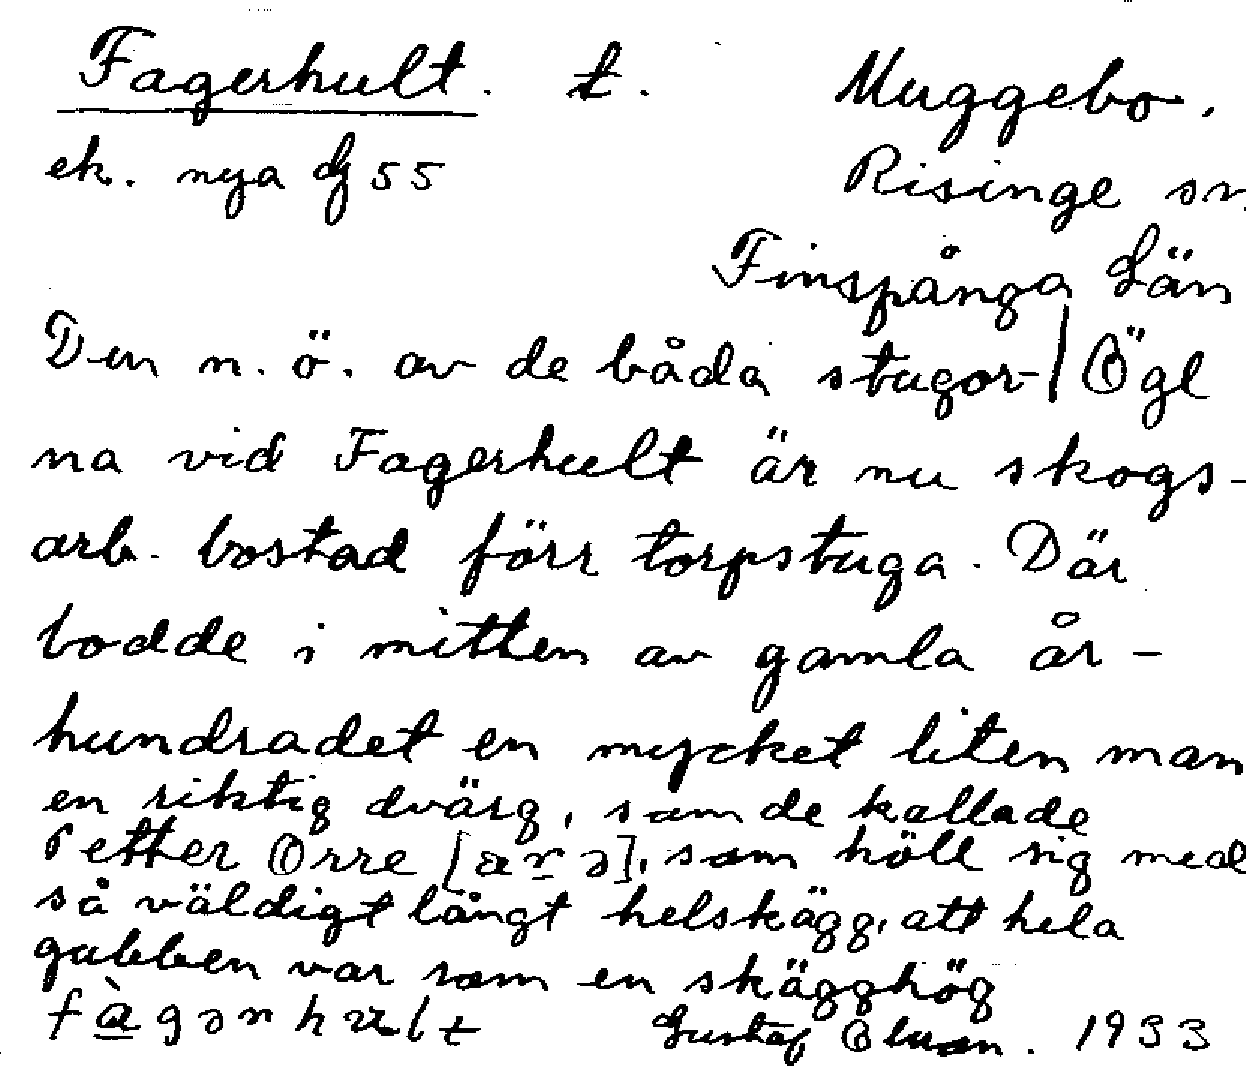 Fagerhult. t. Muggebo.
ek. nya 55 Risinge sn.
Finspånga Län
Den n. ö. av de båda stugor- | Ögl
na vid Fagerhult är nu skogs-
arb. bostad förr torpstuga. Där
bodde i mitten av gamla år-
hundradet en mycket liten man
en riktig dvärg, som de kallade
Petter Orre [ared], som höll sig med
så väldigt långt helskägg, att hela
gubben var som en skägghög
Gustaf 1933